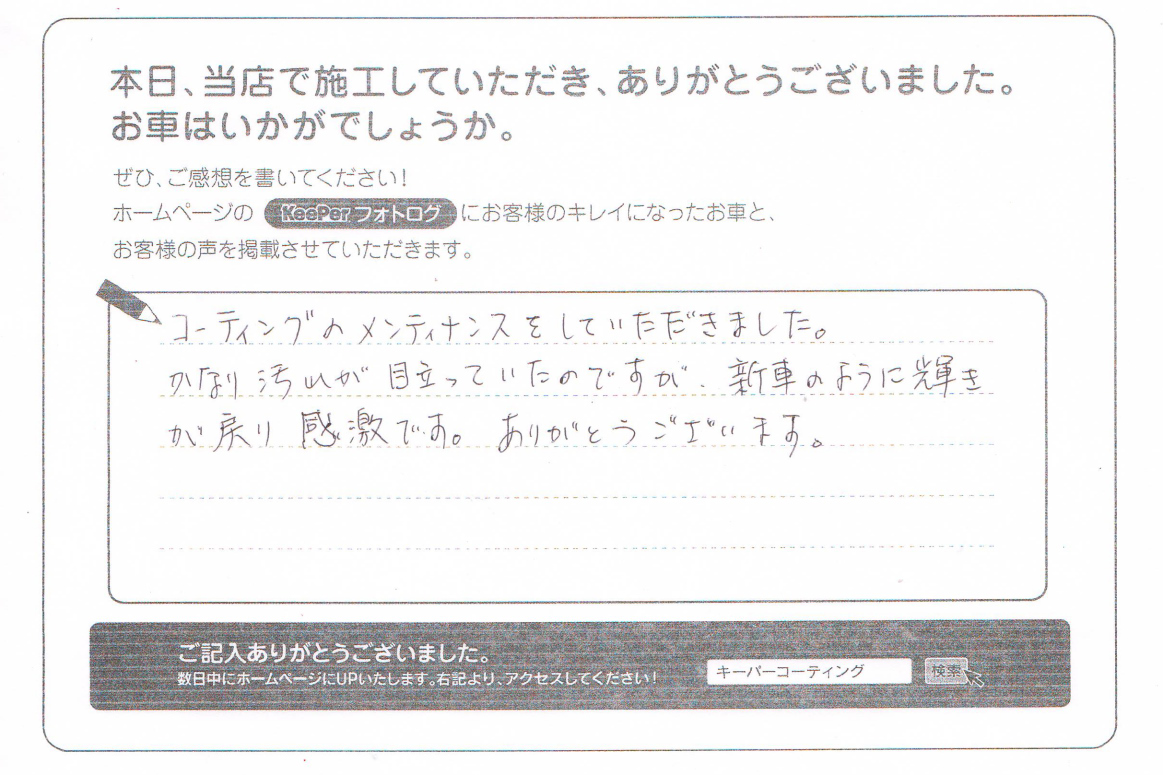 本日、当店で施工していただき、ありがとうございました。
お車はいかがでしょうか。
ぜひ、ご感想を書いてください!
ホームページの KeePer フォトログ にお客様のキレイになったお車と、
お客様の声を掲載させていただきます。
コーティングのメンティナンスをしていただきました。
かなり汚れが目立っていたのですが、新車のように輝き
が戻り感激です。ありがとうございます。
ご記入ありがとうございました。
数日中にホームページにUPいたします。右記より、アクセスしてください!
キーパーコーティング 検索